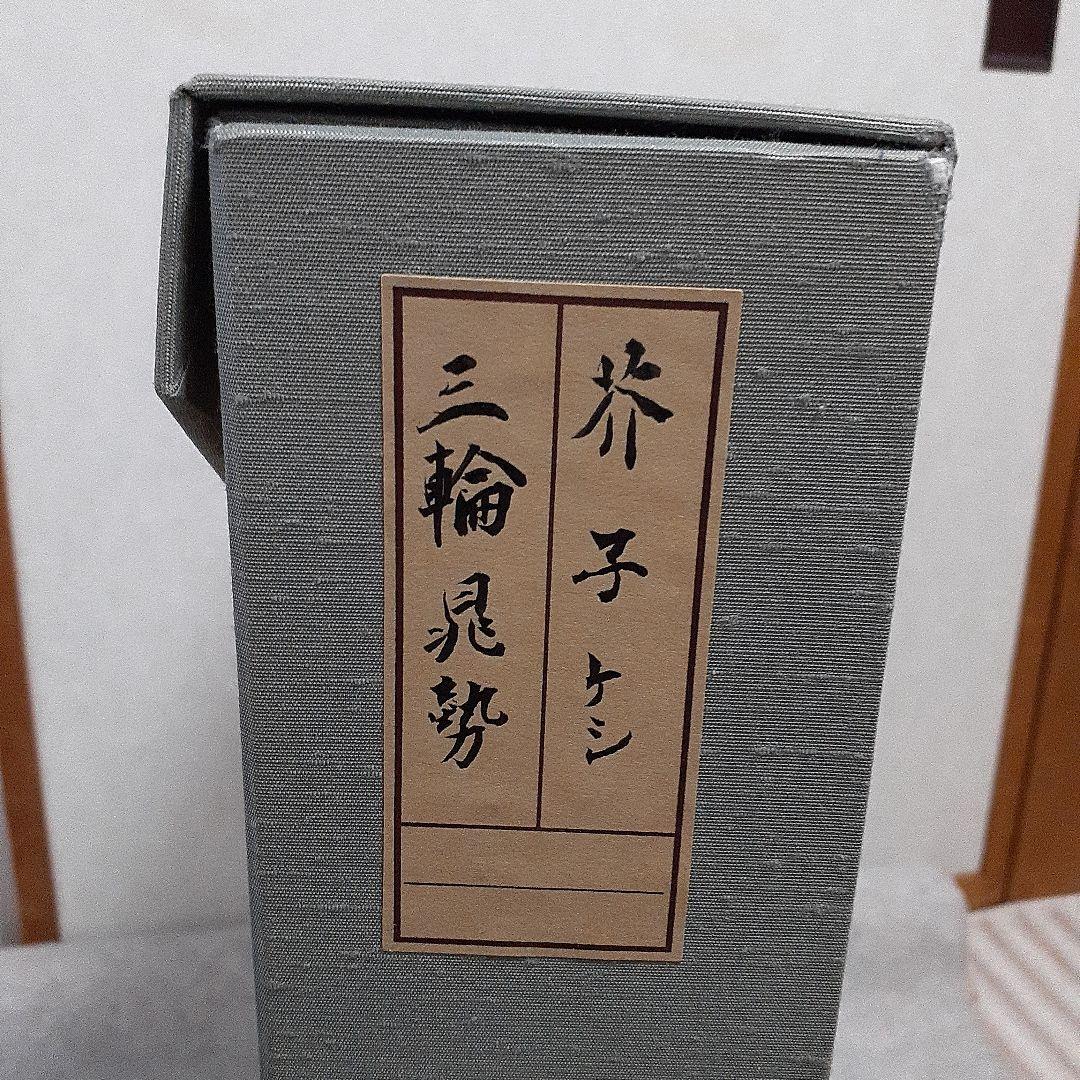 芥子ケシ
三輪晁勢